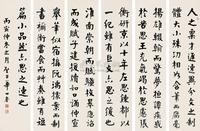 人之稟才遲速異分文之制
體大小殊功相如含筆而腐毫
揚雄輟翰而驚夢桓譚疾感
於苦思王充氣竭於思慮張
衡研京以十年左思練都以一
紀雖有巨文亦思之緩也
淮南崇朝而賦騷枚皋應詔
而成賦子建援牘如口誦仲宣
舉筆似宿構阮瑀據案而制
書禰衡當食而草奏雖有
篇亦思之速也
丙寅仲冬